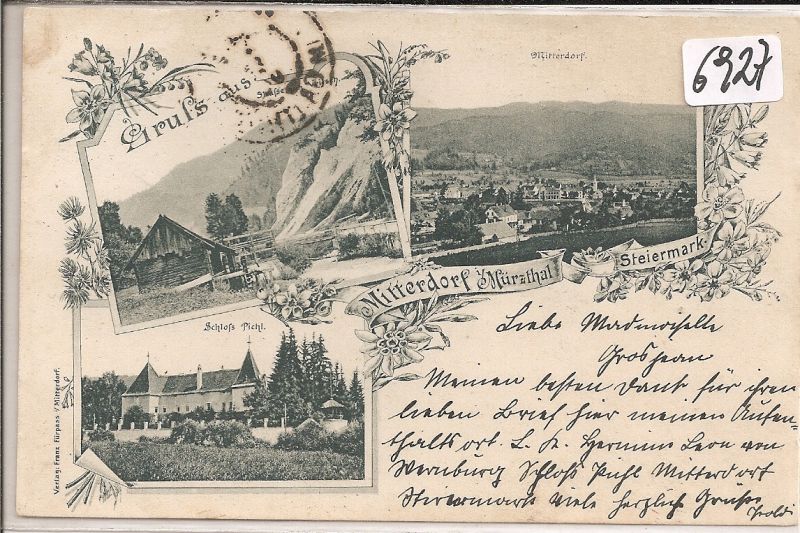 6927
Gruß aus
Mitterdorf.
Mitterdorf i/Mürzthal
Steiermark.
Schloß Pichl.
Verlag: Franz Fürpass i/Mitterdorf.
Liebe Madmoselle
Grosjean
Meinen besten Dank für ihren
lieben Brief hier meinen Aufen
thaltsort. L. K. Hermine Leon von
Wernburg Schloß Pichl Mitterdorf
Steiermark viele herzliche Grüße
Poldi